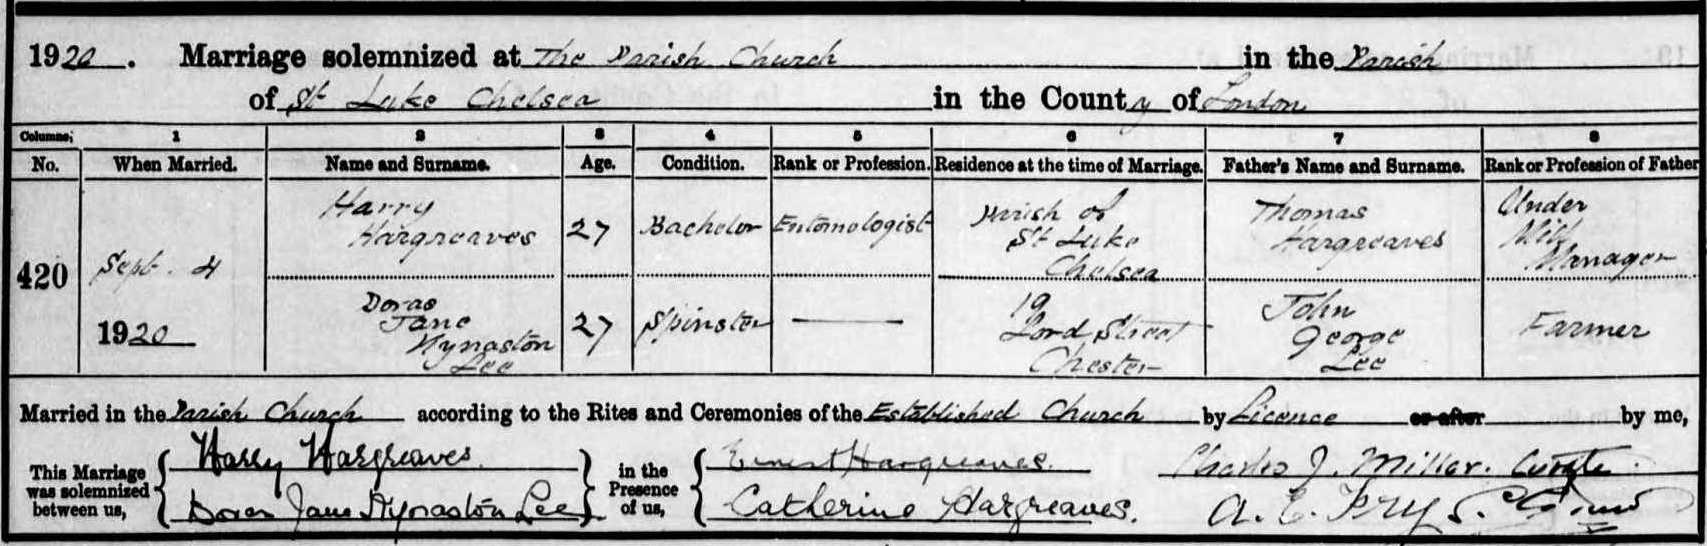 1920. Marriage solemnized at The Parish Church in the Parish
of St Luke Chelsea in the County of London
Columns: 1 2 3 4 5 6 7 8
No. When Married. Name and Surname. Age. Condition. Rank or Profession. Residence at the time of Marriage. Father's Name and Surname. Rank or Profession of Father
420
Sept. 4
1920
Harry
Hargreaves
27
Bachelor
Entomologist
Parish of
St Luke
Chelsea
Thomas
Hargreaves
Under
Mill
Manager
Doras
Jane
Hynaston
Lee
27
Spinster
19
Lord Street
Chester
John
George
Lee
Farmer
Married in the Parish Church according to the Rites and Ceremonies of the Established Church by Licence or after by me,
This Marriage
was solemnized
between us,
Harry Hargreaves
Doras Jane Hynaston Lee
in the
Presence
of us,
Ernest Hargreaves
Catherine Hargreaves.
Charles J. Miller. Curate.
A. E. Fry